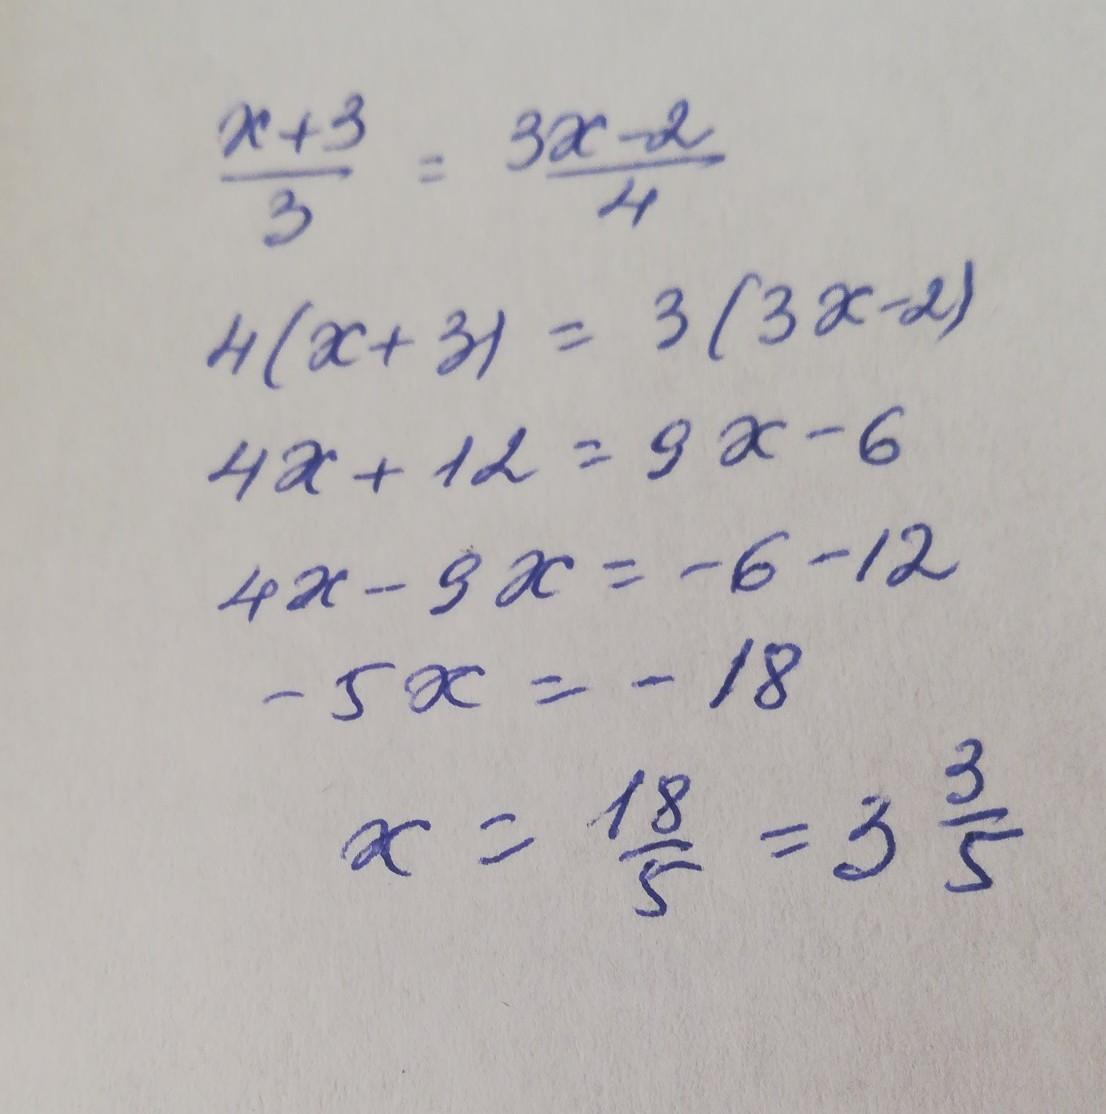 x+3/3 = 3x-2/4
4(x+3) = 3(3x-2)
4x+12 = 9x-6
4x-9x = -6-12
-5x = -18
x = 18/5 = 3 3/5